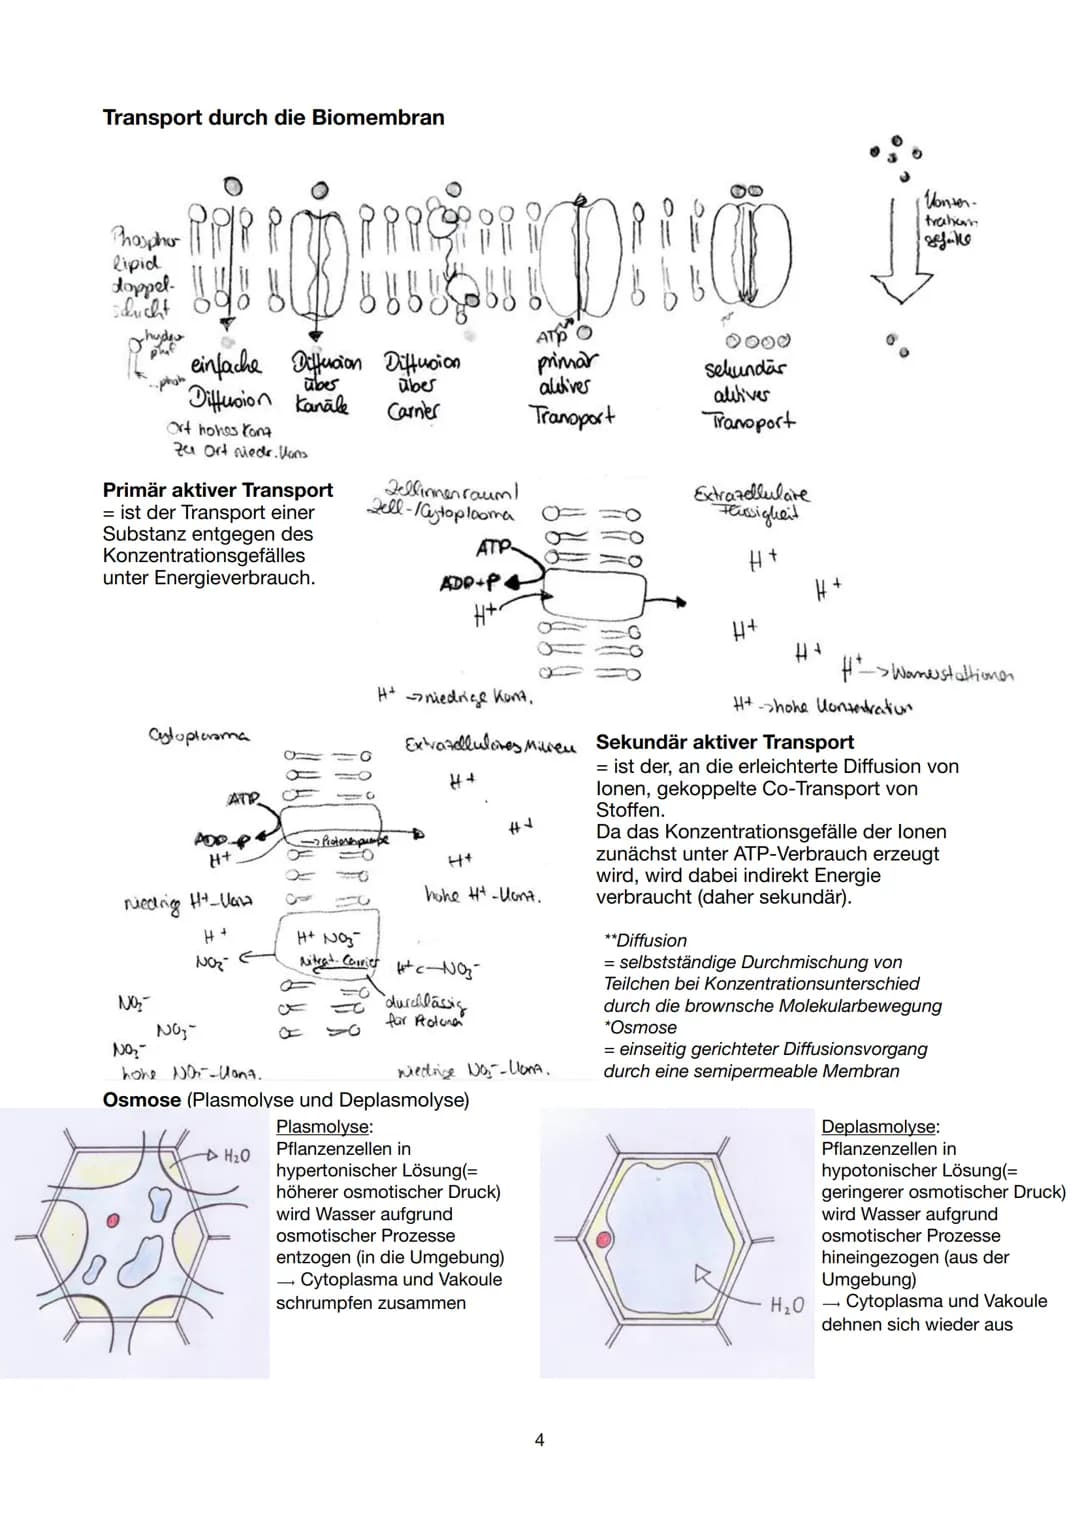 Transport durch die Biomembran
Konzen-
tration
gefälle
Phospho
lipid
doppel-
schicht
hydro
phil
..phob
einfache
Diffusion
Ort hohes Konz
zu Ort niedr. Konz
Diffusion
über
Kanäle
Diffusion
über
Carrier
ATP
primär
aktives
Transport
sekundär
aktives
Transport
Primär aktiver Transport
= ist der Transport einer
Substanz entgegen des
Konzentrationsgefälles
unter Energieverbrauch.
Zellinnenraum/
Zell-/Cytoplasma
ATP
ADP+P
H+
H+ → niedrige Konz.
Extrazelluläre
Flüssigkeit
H+
H+
H+
H+
H+
H+ → hohe Konzentration
Cytoplasma
Extrazelluläres Milieu
ATP
ADP-P
H+
→ Protonenpumpe
H+
H+
H+
niedrig H+-Konz
hohe H+-Konz.
H+
NO3-
H+ NO3-
Nitrat-Carrier
H+ NO3-
durchlässig
für Protonen
NO3-
NO3-
NO3-
hohe NO3--Konz.
niedrige NO3--Konz.
Sekundär aktiver Transport
= ist der, an die erleichterte Diffusion von
Ionen, gekoppelte Co-Transport von
Stoffen.
Da das Konzentrationsgefälle der Ionen
zunächst unter ATP-Verbrauch erzeugt
wird, wird dabei indirekt Energie
verbraucht (daher sekundär).
**Diffusion
= selbstständige Durchmischung von
Teilchen bei Konzentrationsunterschied
durch die brownsche Molekularbewegung
*Osmose
= einseitig gerichteter Diffusionsvorgang
durch eine semipermeable Membran
Osmose (Plasmolyse und Deplasmolyse)
H2O
Plasmolyse:
Pflanzenzellen in
hypertonischer Lösung(=
höherer osmotischer Druck)
wird Wasser aufgrund
osmotischer Prozesse
entzogen (in die Umgebung)
→ Cytoplasma und Vakoule
schrumpfen zusammen
H2O
Deplasmolyse:
Pflanzenzellen in
hypotonischer Lösung(=
geringerer osmotischer Druck)
wird Wasser aufgrund
osmotischer Prozesse
hineingezogen (aus der
Umgebung)
→ Cytoplasma und Vakoule
dehnen sich wieder aus
4